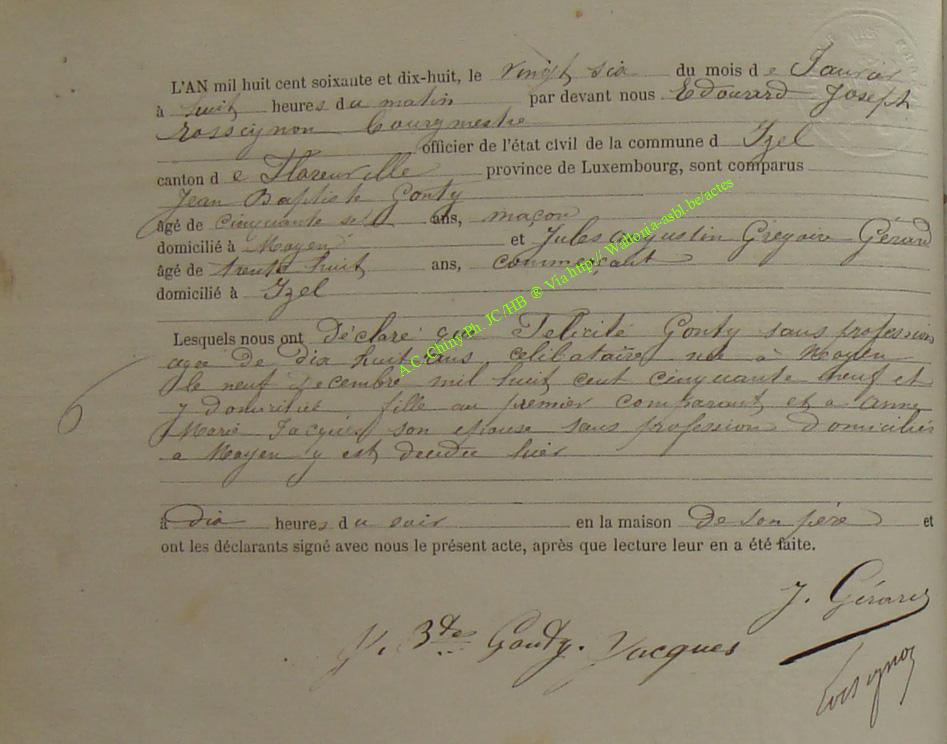 L'AN mil huit cent soixante et dix-huit, le vingt six du mois de Janvier
à huit heures du matin par devant nous Edouard Joseph
Rossignon bourgmestre
officier de l'état civil de la commune d Izel
canton de Florenville province de Luxembourg, sont comparus
Jean Baptiste Gonty
âgé de cinquante sept ans, maçon
domicilié à Moyen et Jules Augustin Grégoire Gérard
âgé de trente huit ans, commerçant
domicilié à Izel
Lesquels nous ont Déclaré que Félicité Gonty sans profession
agée de dix huit ans, célibataire, née à Moyen
le neuf Décembre mil huit cent cinquante neuf et
y domiciliée, fille du premier comparant et de Anne
Marie Jacques son épouse sans profession domiciliés
a Moyen y est décédée hier
6
à dix heures du soir en la maison De son père et
ont les déclarants signé avec nous le présent acte, après que lecture leur en a été faite.
J. Gérard
J. Bte Gonty. Jacques
Rossignon
A.C. Chiny Ph. JC/HB ® Via http://Wallonia-asbl.be/actes